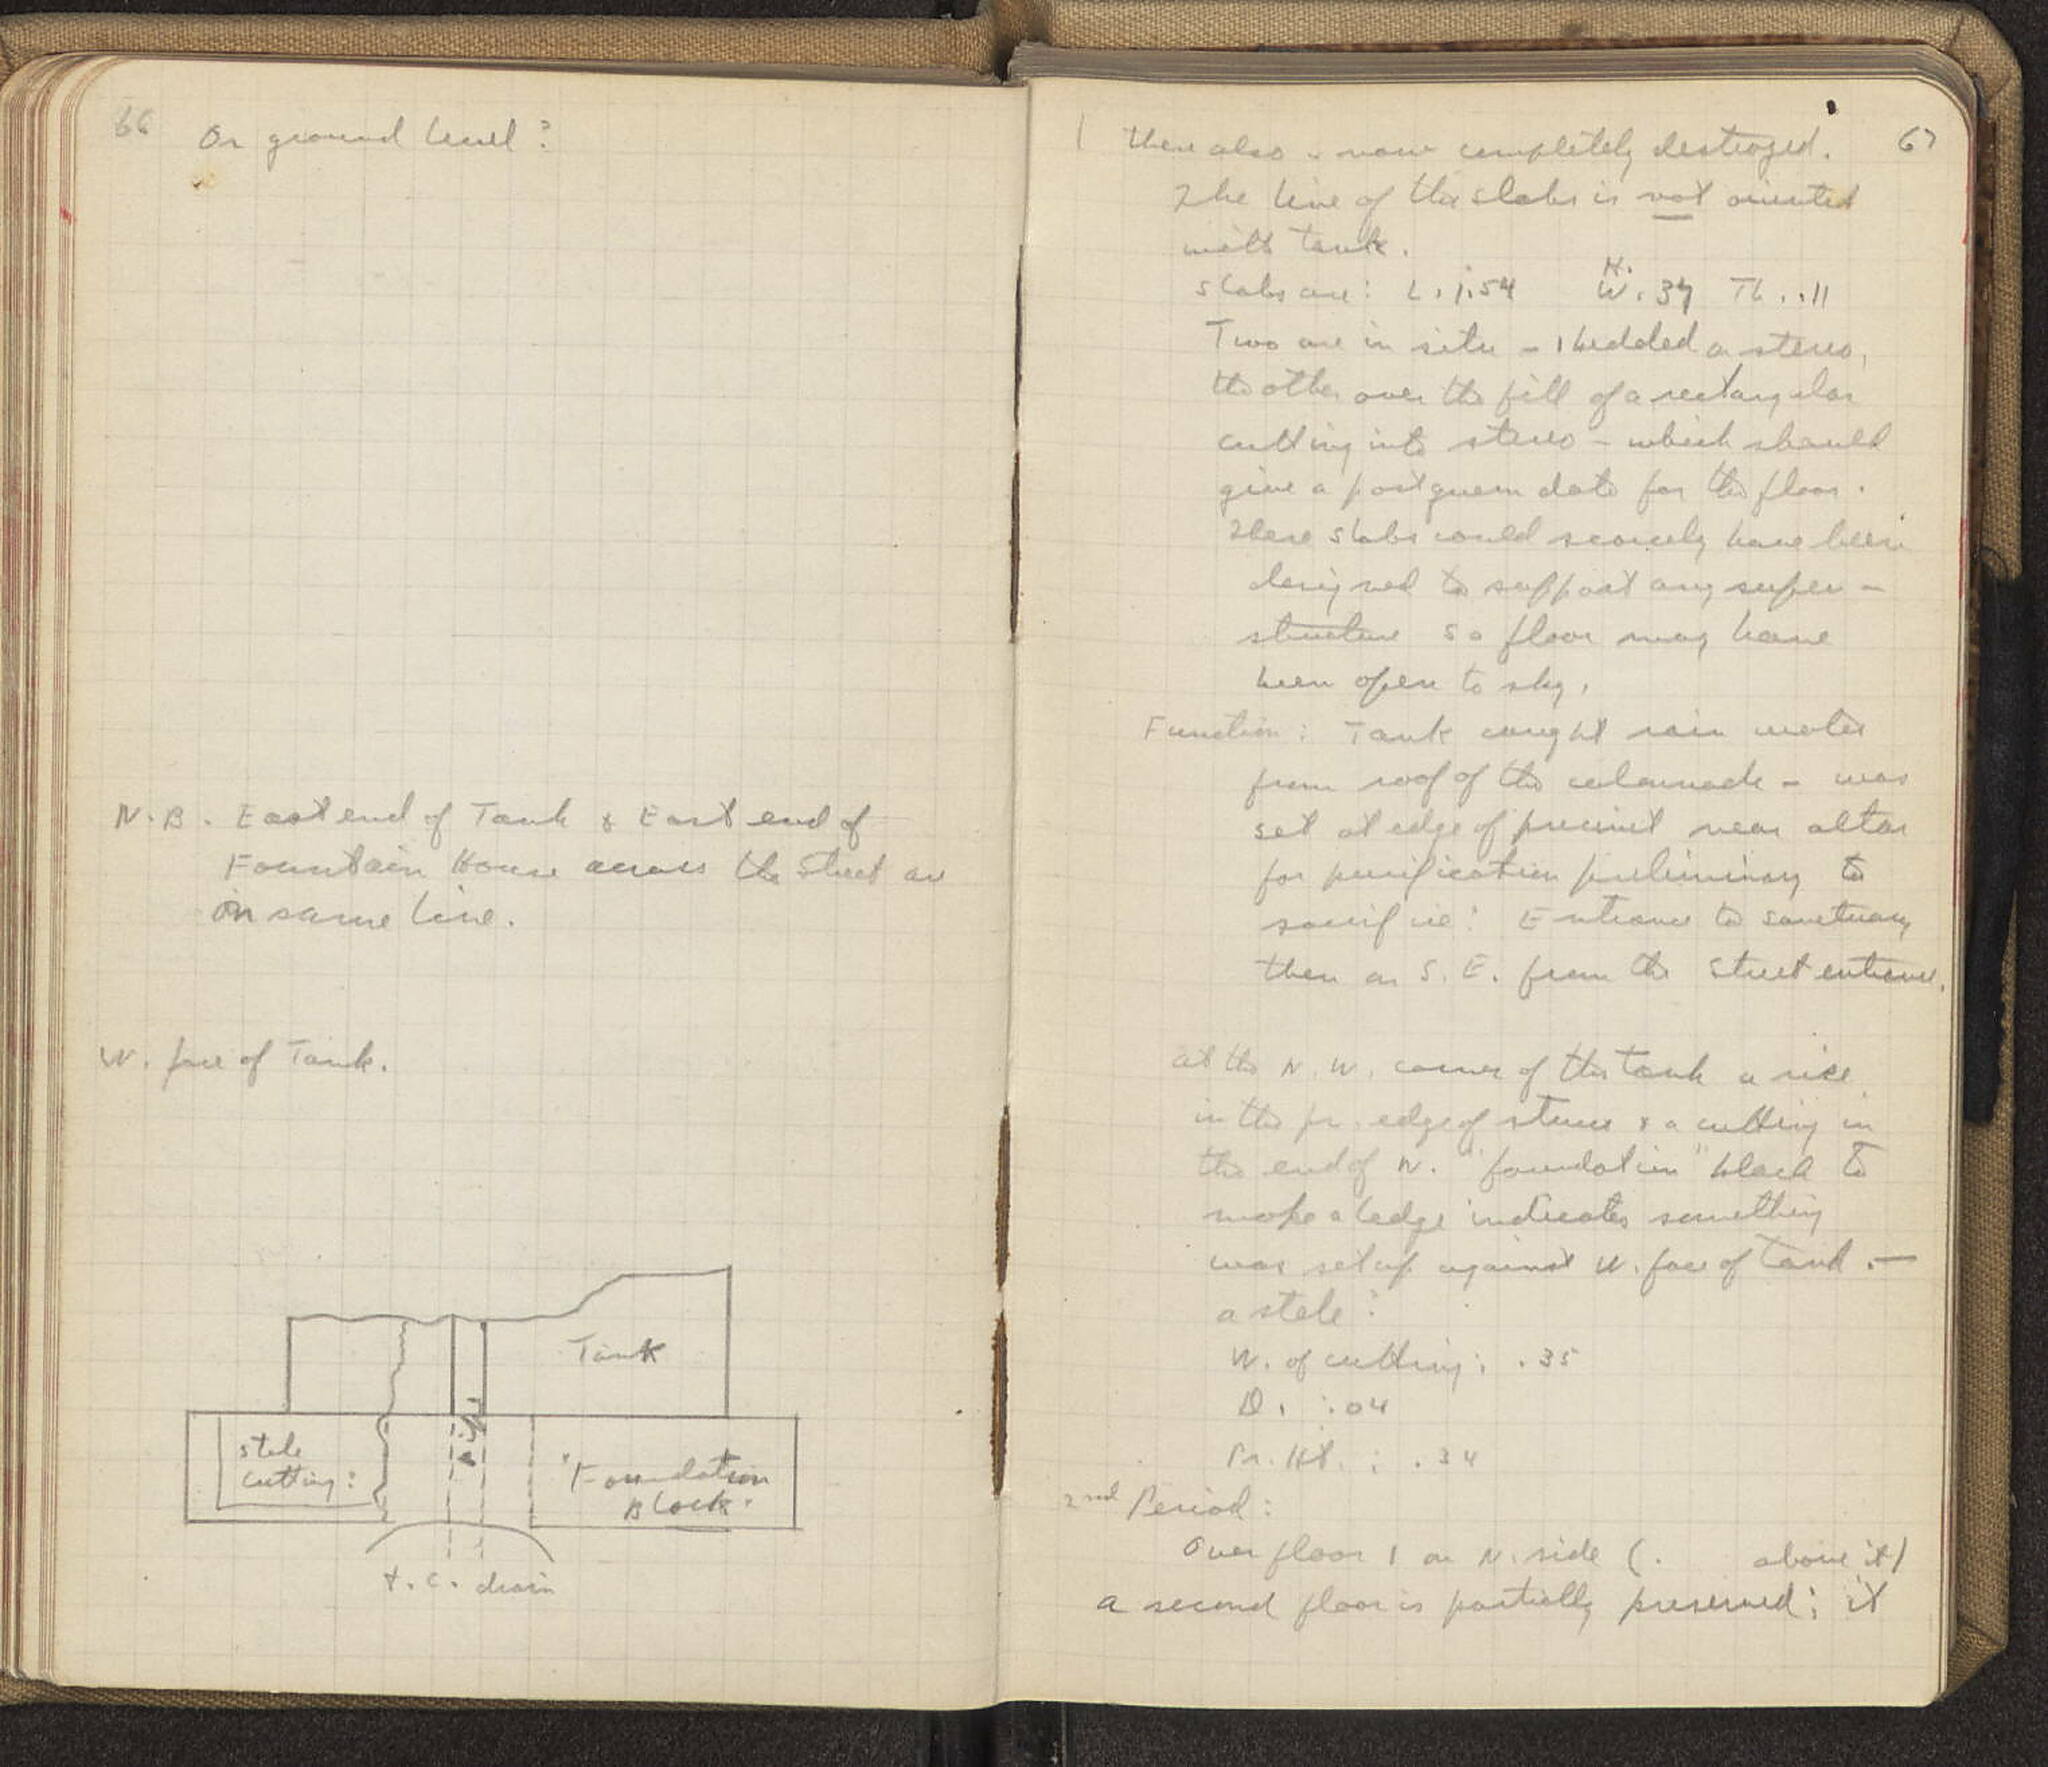 66
On ground level?
N.B. East end of Tank & East end of
Fountain House across the street are
in same line.
W. face of Tank.
Tank
stele
cutting?
pipe
"Foundation
Block"
t.c. drain
67
there also is now completely destroyed.
The line of the slabs is not oriented
with tank.
H.
Slabs are: L. 1.54 W. .34 Th. .11
Two are in situ – 1 bedded on stereo,
the other over the fill of a rectangular
cutting into stereo – which should
give a post quem date for the floor.
These slabs could scarcely have been
designed to support any super-
structure so floor may have
been open to sky.
Function: Tank caught rain water
from roof of the colonnade – was
set at edge of precinct near altar
for purification preliminary to
sacrifice? Entrance to sanctuary
then on S.E. from the street entrance.
at the N.W. corner of the tank a rise
in the pr. edge of stucco & a cutting in
the end of N. "foundation" block to
make a ledge indicates something
was set up against W. face of tank. –
a stele?
W. of cutting: .35
D. : .04
Pr. Ht. : .34
2nd Period:
Over floor 1 on N. side (. above it)
a second floor is partially preserved; it